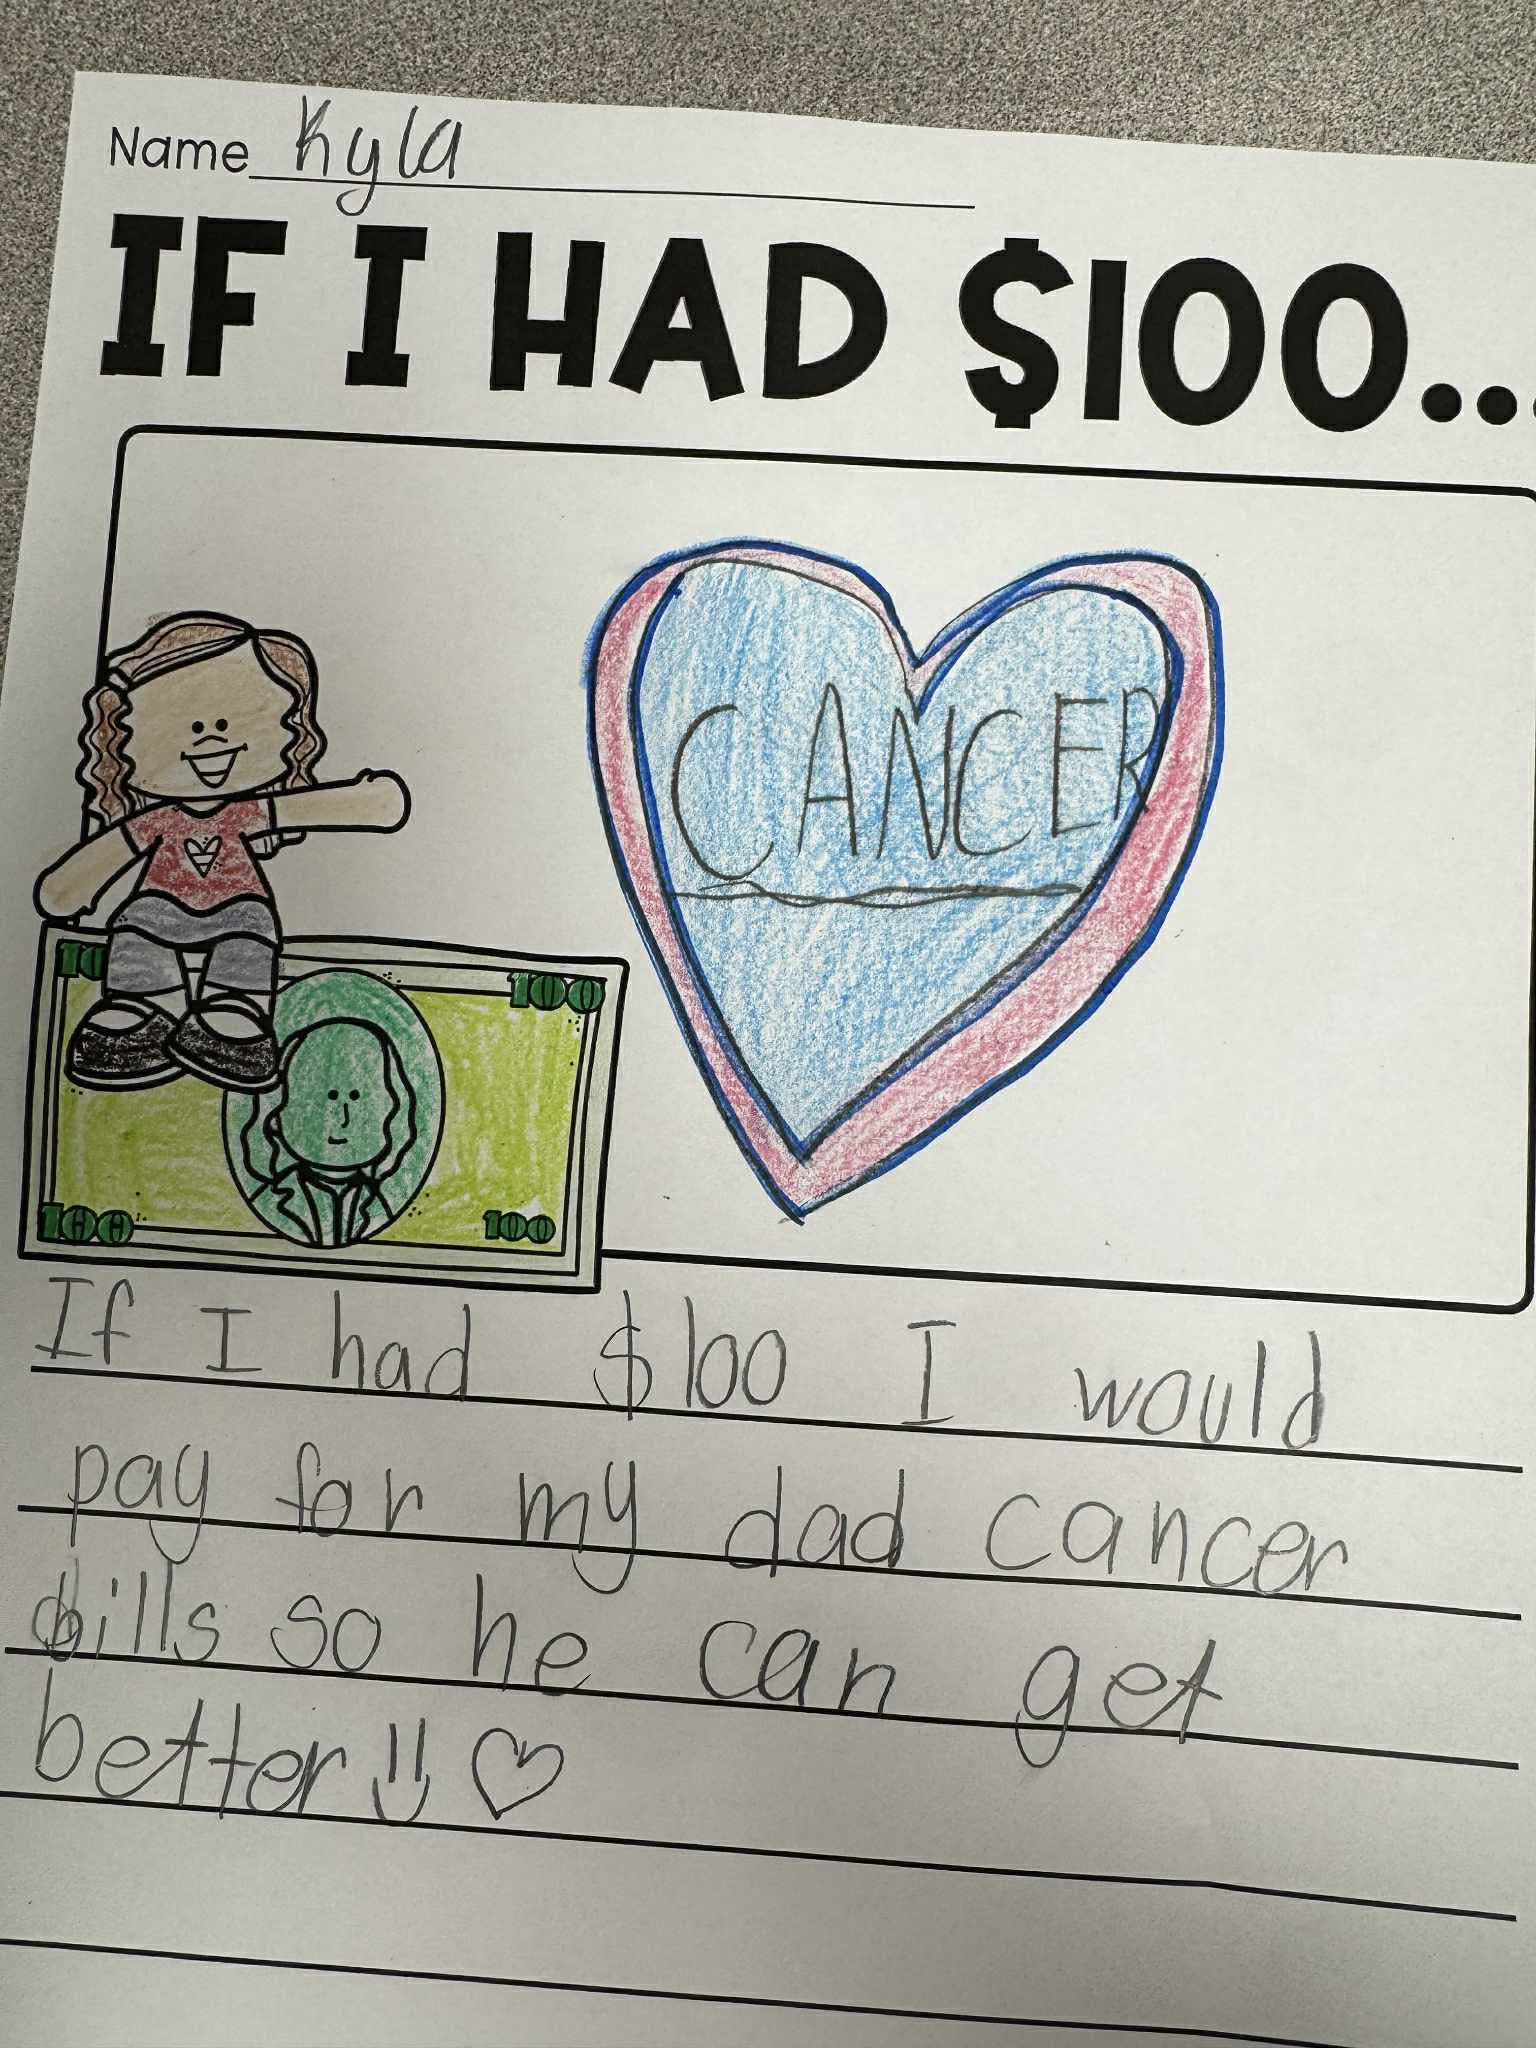 Name Kyla
IF I HAD $100...
CANCER
100 100
100 100
If I had $100 I would
pay for my dad cancer
bills so he can get
better!!